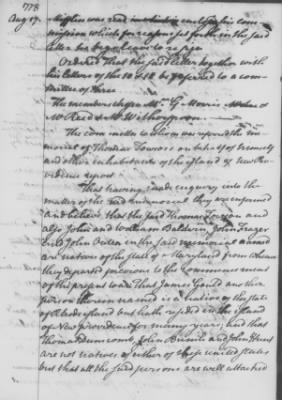 1778
Aug 17.
Mifflin was read enclosing his com
mission which for reasons set forth in the said
letter he begs leave to resign
Ordered That the said letter together with
his letters of the be referred to a com
mittee of three
The members chosen Mr G Morris
Mr Read & Mr Witherspoon
The committee to whom was referred the me
morial of Thomas on behalf of himself
and other inhabitants of the island of New Pro
vidence report
That having made enquiry into the
matter of the said memorial they are informed
and believe that the said Thomas and
also John and William Baldwin, John Frazer
and John in the said memorial named
are natives of the state of Maryland from whence
they departed previous to the commencement
of the present war That James Gould another
person therein named is a native of the state
of Rhode island but hath resided in the island
of New providence for many years; and that
Thomas Duncomb, John and John
are not natives of either of these united states
but that all the said persons are well attached